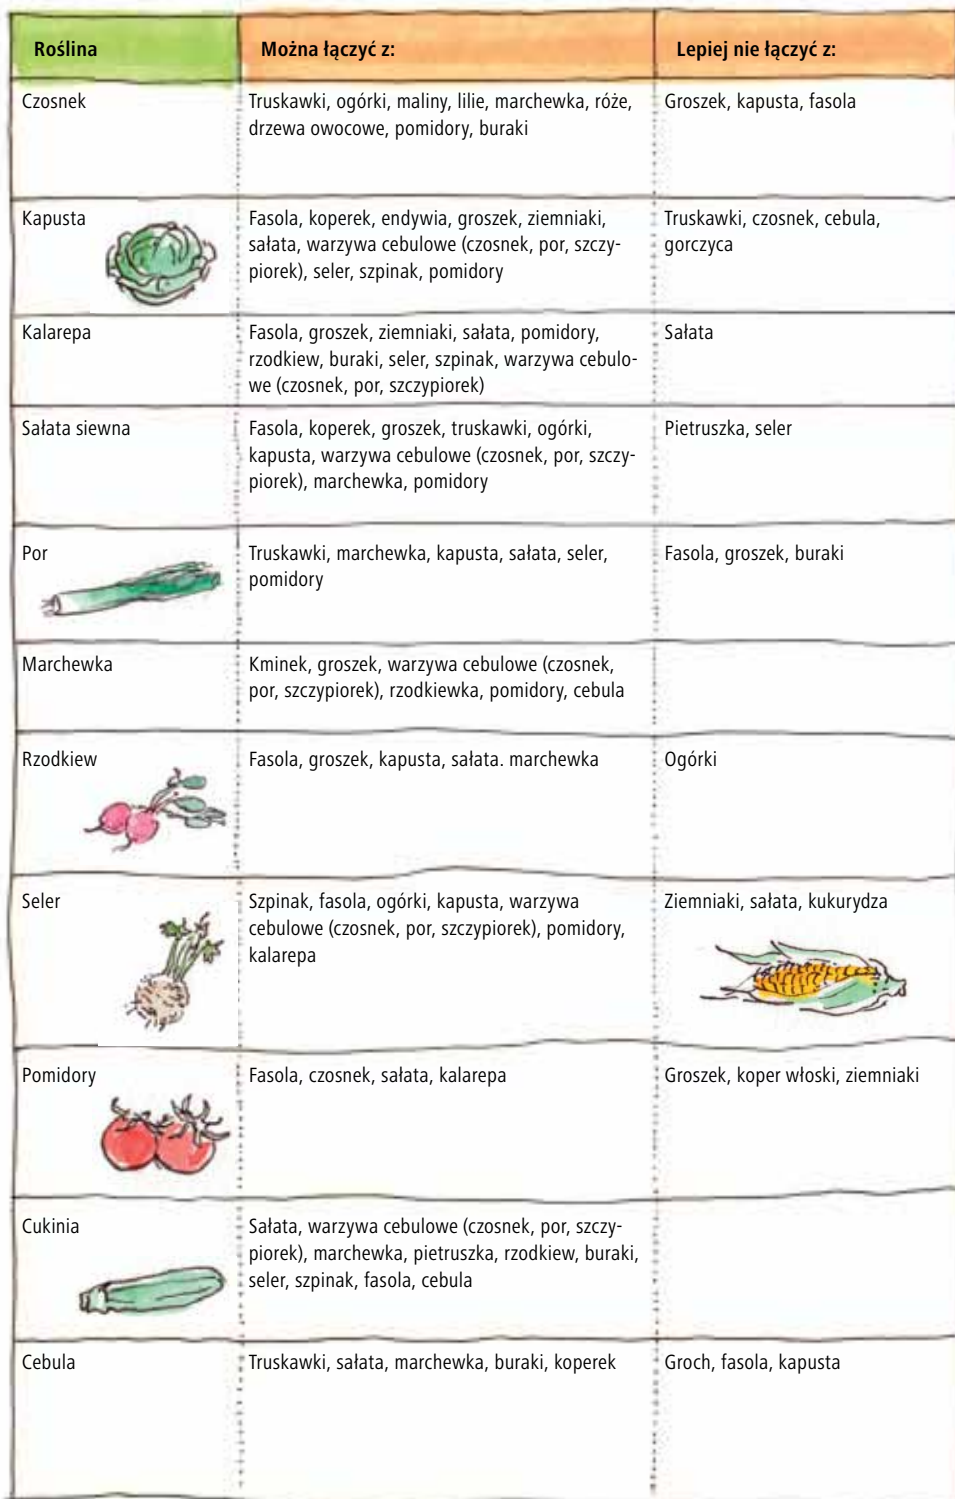 Roślina
Można łączyć z:
Lepiej nie łączyć z:
Czosnek
Truskawki, ogórki, maliny, lilie, marchewka, róże,
drzewa owocowe, pomidory, buraki
Groszek, kapusta, fasola
Kapusta
Fasola, koperek, endywia, groszek, ziemniaki,
sałata, warzywa cebulowe (czosnek, por, szczy-
piorek), seler, szpinak, pomidory
Truskawki, czosnek, cebula,
gorczyca
Kalarepa
Fasola, groszek, ziemniaki, sałata, pomidory,
rzodkiew, buraki, seler, szpinak, warzywa cebulo-
we (czosnek, por, szczypiorek)
Sałata
Sałata siewna
Fasola, koperek, groszek, truskawki, ogórki,
kapusta, warzywa cebulowe (czosnek, por, szczy-
piorek), marchewka, pomidory
Pietruszka, seler
Por
Truskawki, marchewka, kapusta, sałata, seler,
pomidory
Fasola, groszek, buraki
Marchewka
Kminek, groszek, warzywa cebulowe (czosnek,
por, szczypiorek), rzodkiewka, pomidory, cebula
Rzodkiew
Fasola, groszek, kapusta, sałata. marchewka
Ogórki
Seler
Szpinak, fasola, ogórki, kapusta, warzywa
cebulowe (czosnek, por, szczypiorek), pomidory,
kalarepa
Ziemniaki, sałata, kukurydza
Pomidory
Fasola, czosnek, sałata, kalarepa
Groszek, koper włoski, ziemniaki
Cukinia
Sałata, warzywa cebulowe (czosnek, por, szczy-
piorek), marchewka, pietruszka, rzodkiew, buraki,
seler, szpinak, fasola, cebula
Cebula
Truskawki, sałata, marchewka, buraki, koperek
Groch, fasola, kapusta